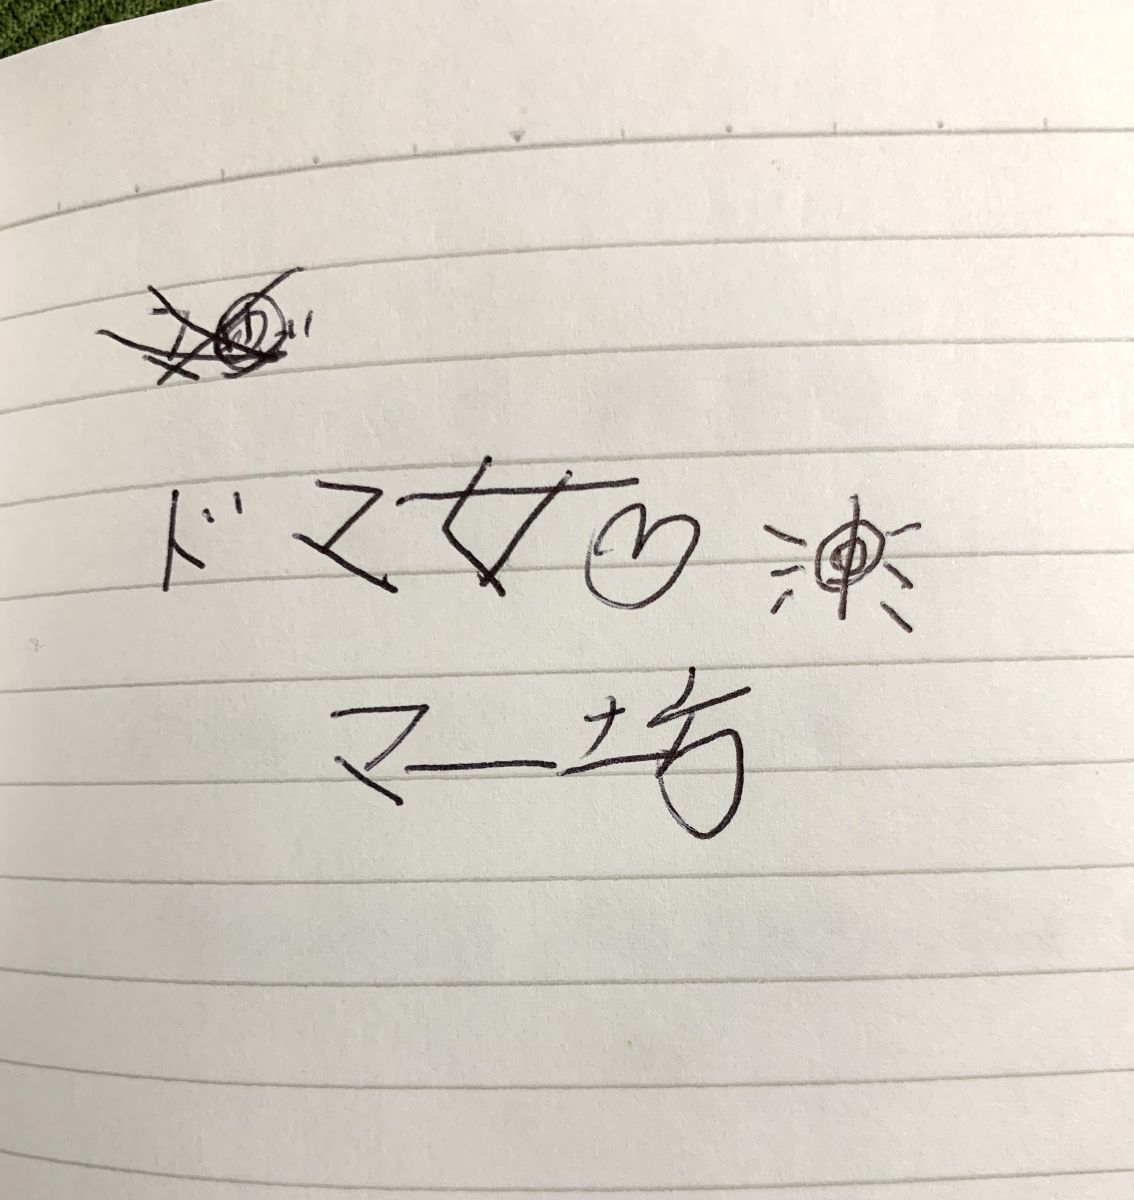 ドマ女の
マー坊